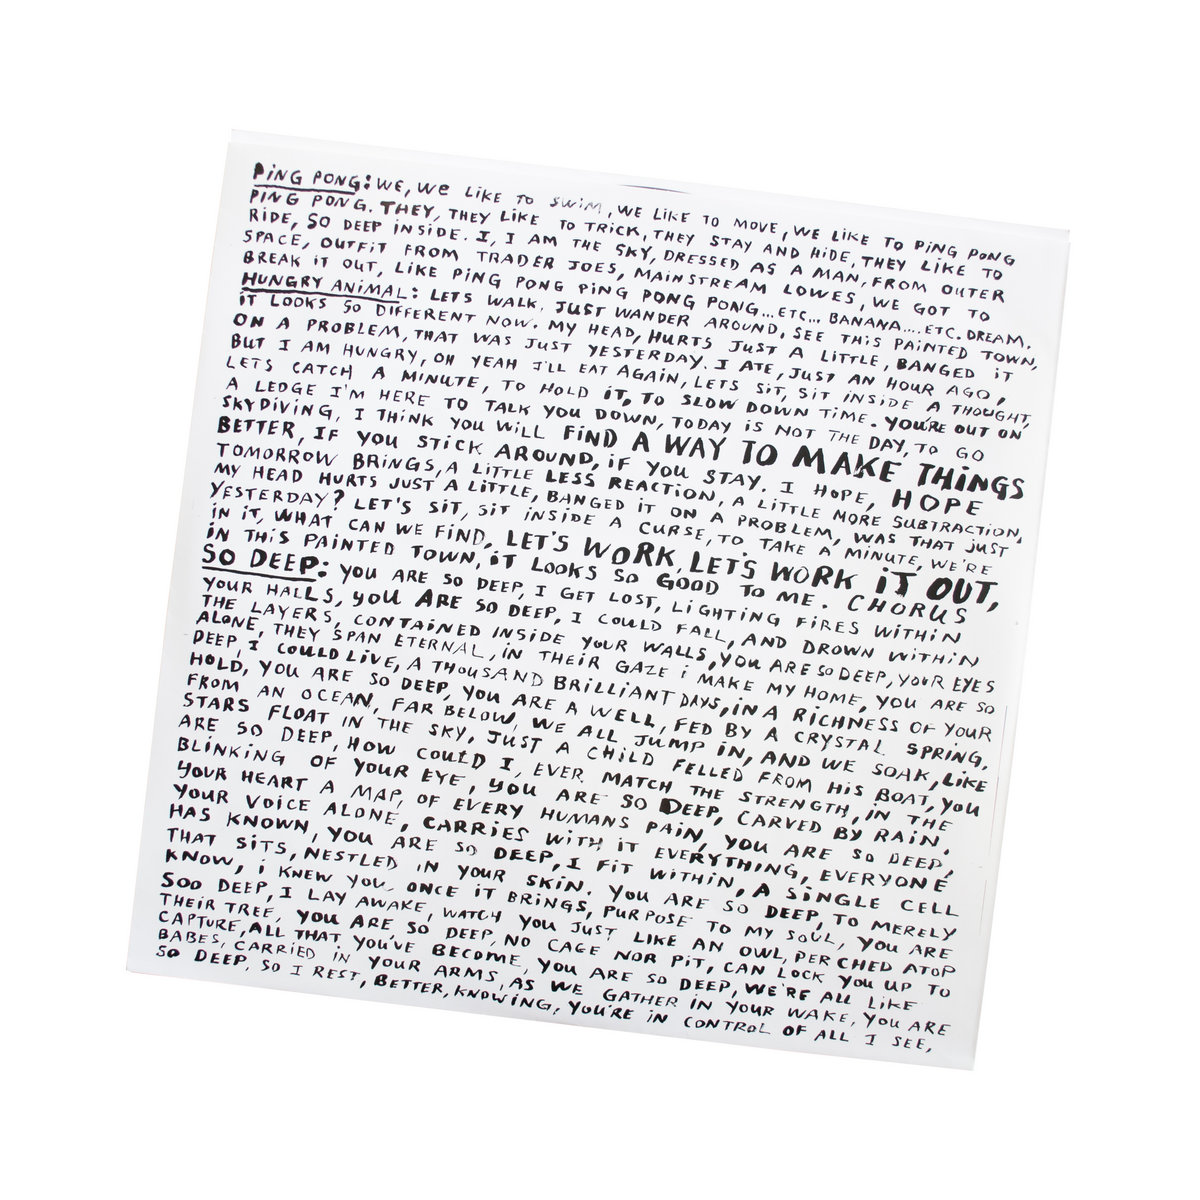 PING PONG: WE, WE LIKE TO SWIM, WE LIKE TO MOVE, WE LIKE TO PING PONG
PING PONG. THEY, THEY LIKE TO TRICK, THEY STAY AND HIDE, THEY LIKE TO
RIDE, SO DEEP INSIDE. I, I AM THE SKY, DRESSED AS A MAN, FROM OUTER
SPACE, OUTFIT FROM TRADER JOES, MAINSTREAM LOWES, WE GOT TO
BREAK IT OUT, LIKE PING PONG PING PONG PONG...ETC... BANANA....ETC. DREAM.
HUNGRY ANIMAL: LETS WALK, JUST WANDER AROUND, SEE THIS PAINTED TOWN,
IT LOOKS SO DIFFERENT NOW. MY HEAD, HURTS JUST A LITTLE, BANGED IT
ON A PROBLEM, THAT WAS JUST YESTERDAY. I ATE, JUST AN HOUR AGO,
BUT I AM HUNGRY, OH YEAH I'LL EAT AGAIN, LETS SIT, SIT INSIDE A THOUGHT,
LETS CATCH A MINUTE, TO HOLD IT, TO SLOW DOWN TIME. YOU'RE OUT ON
A LEDGE I'M HERE TO TALK YOU DOWN, TODAY IS NOT THE DAY, TO GO
SKYDIVING, I THINK YOU WILL FIND A WAY TO MAKE THINGS
BETTER, IF YOU STICK AROUND, IF YOU STAY. I HOPE, HOPE
TOMORROW BRINGS, A LITTLE LESS REACTION, A LITTLE MORE SUBTRACTION,
MY HEAD HURTS JUST A LITTLE, BANGED IT ON A PROBLEM, WAS THAT JUST
YESTERDAY? LET'S SIT, SIT INSIDE A CURSE, TO TAKE A MINUTE, WE'RE
IN IT, WHAT CAN WE FIND, LET'S WORK, LET'S WORK IT OUT,
IN THIS PAINTED TOWN, IT LOOKS SO GOOD TO ME. CHORUS
SO DEEP: YOU ARE SO DEEP, I GET LOST, LIGHTING FIRES WITHIN
YOUR HALLS, YOU ARE SO DEEP, I COULD FALL, AND DROWN WITHIN
THE LAYERS, CONTAINED INSIDE YOUR WALLS, YOU ARE SO DEEP, YOUR EYES
ALONE, THEY SPAN ETERNAL, IN THEIR GAZE I MAKE MY HOME, YOU ARE SO
DEEP, I COULD LIVE, A THOUSAND BRILLIANT DAYS, IN A RICHNESS OF YOUR
HOLD, YOU ARE SO DEEP, YOU ARE A WELL, FED BY A CRYSTAL SPRING,
FROM AN OCEAN, FAR BELOW, WE ALL JUMP IN, AND WE SOAK, LIKE
STARS FLOAT IN THE SKY, JUST A CHILD FELLED FROM HIS BOAT, YOU
ARE SO DEEP, HOW COULD I, EVER MATCH THE STRENGTH, IN THE
BLINKING OF YOUR EYE, YOU ARE SO DEEP, CARVED BY RAIN,
YOUR HEART A MAP, OF EVERY HUMANS PAIN, YOU ARE SO DEEP,
YOUR VOICE ALONE, CARRIES WITH IT EVERYTHING, EVERYONE
HAS KNOWN, YOU ARE SO DEEP, I FIT WITHIN, A SINGLE CELL
THAT SITS, NESTLED IN YOUR SKIN. YOU ARE SO DEEP, TO MERELY
KNOW, I KNEW YOU, ONCE IT BRINGS, PURPOSE TO MY SOUL, YOU ARE
SOO DEEP, I LAY AWAKE, WATCH YOU JUST LIKE AN OWL, PERCHED ATOP
THEIR TREE, YOU ARE SO DEEP, NO CAGE NOR PIT, CAN LOCK YOU UP TO
CAPTURE, ALL THAT YOU'VE BECOME, YOU ARE SO DEEP, WE'RE ALL LIKE
BABES, CARRIED IN YOUR ARMS, AS WE GATHER IN YOUR WAKE, YOU ARE
SO DEEP, SO I REST, BETTER, KNOWING, YOU'RE IN CONTROL OF ALL I SEE,